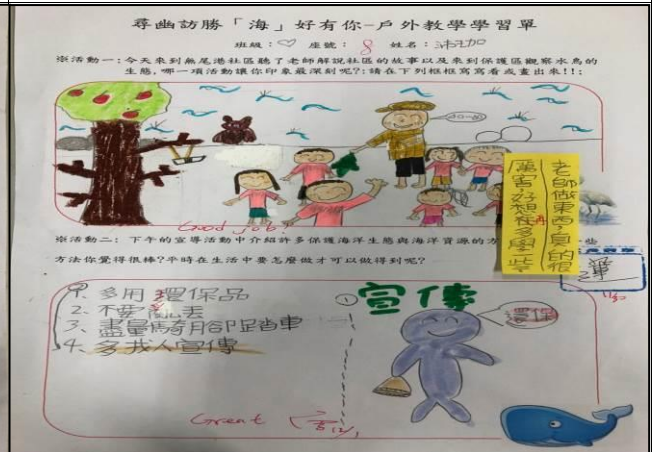 尋幽訪勝「海」好有你-戶外教學學習單
班級：♡ 座號：8 姓名：
※活動一：今天來到無尾港社區聽了老師解說社區的故事以及來到保護區觀察水鳥的
生態，哪一項活動讓你印象最深刻呢？請在下列框框寫寫看或畫出來！！：
老師做東西真的很
厲害好想再多學一些
Good job!
※活動二：下午的宣導活動中介紹許多保護海洋生態與海洋資源的方
些
方法你覺得很棒？平時在生活中要怎麼做才可以做得到呢？
1. 多用環保品
2. 不要亂丟
3. 盡量騎腳踏車
4. 多找人宣傳
①
宣傳
環保
Great
12/1